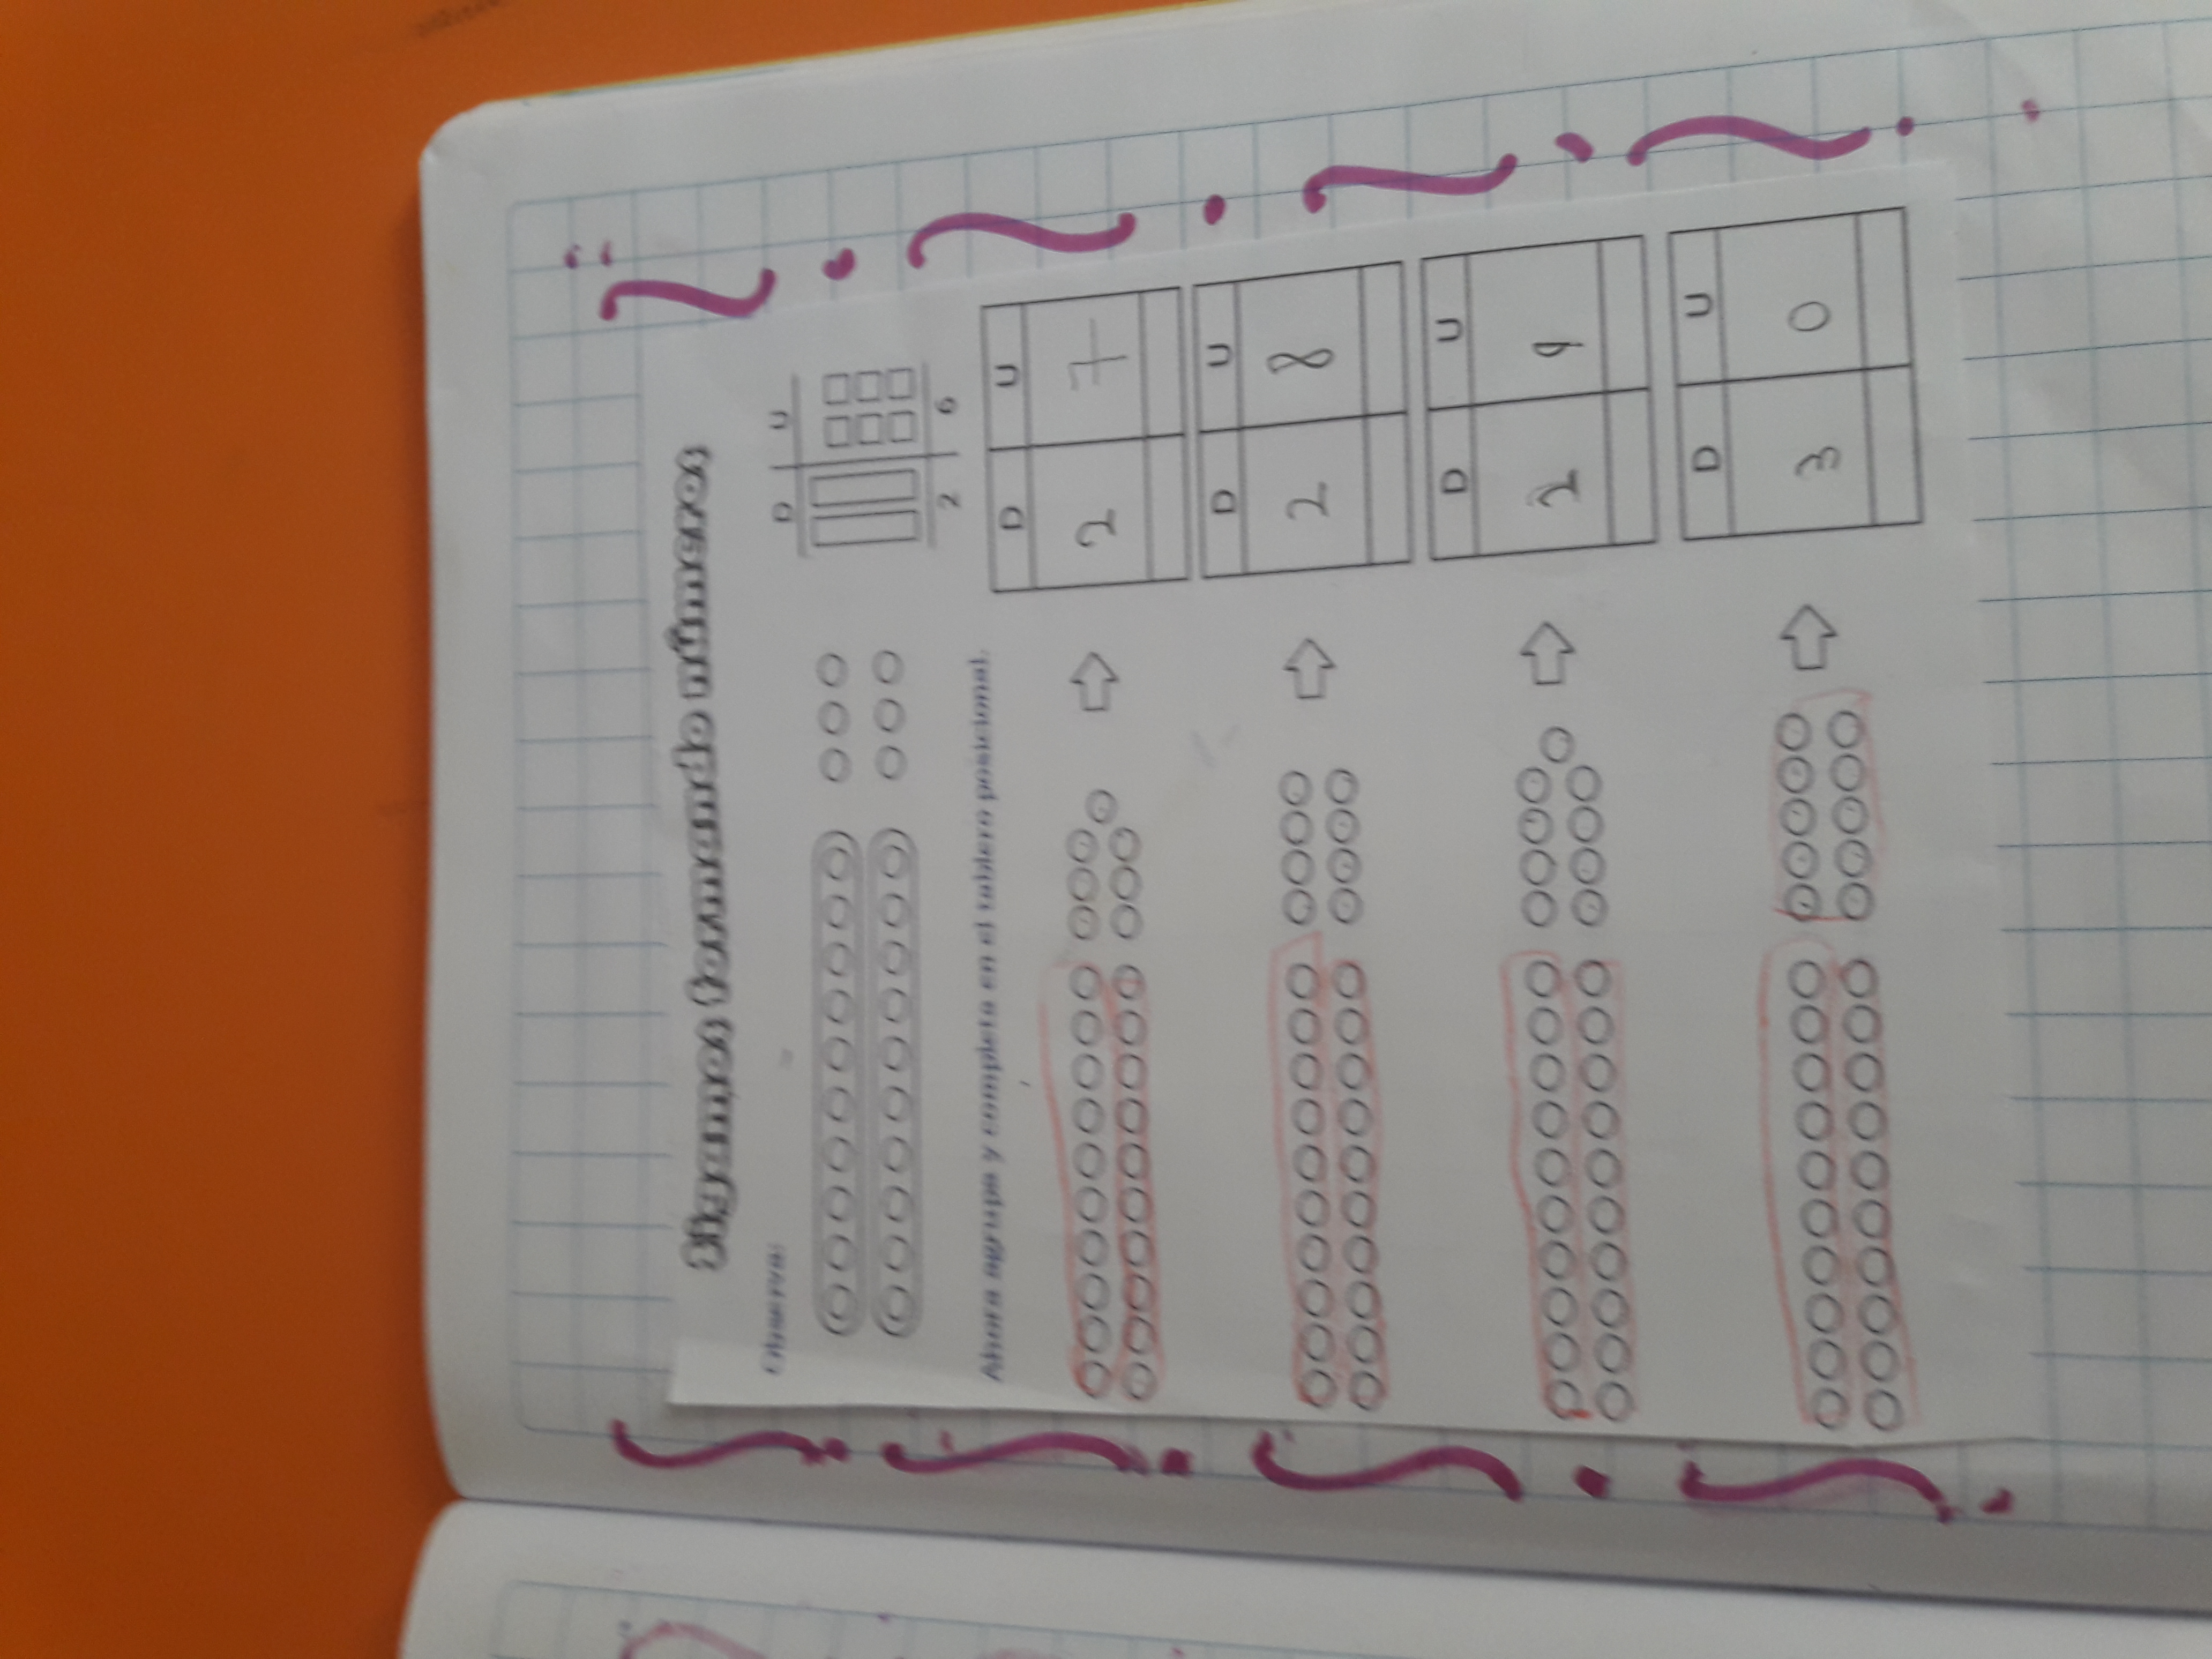 Sigamos formando números
Observa:
D U
2 6
Ahora agrupa y completa en el tablero posicional.
D U
2 7
D U
2 8
D U
2 9
D U
3 0